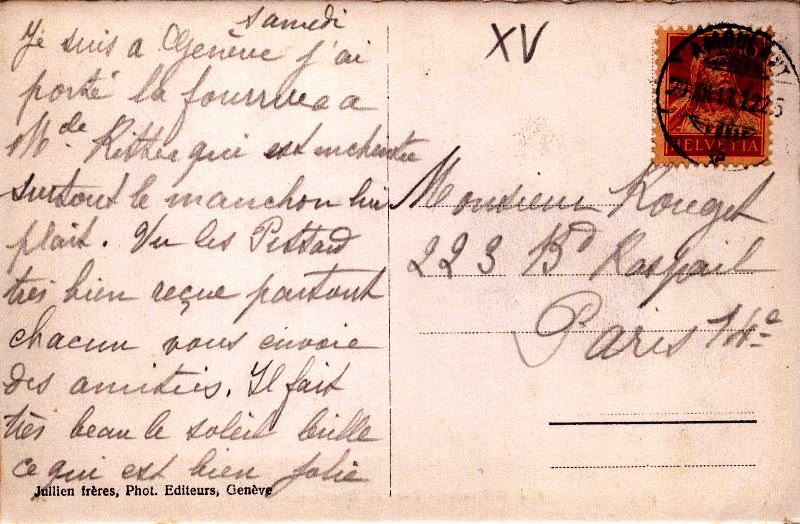 samedi
Je suis a Genève j'ai
porté la fourrure a
Mde Ritter qui est enchantée
surtout le manchon lui
plait. Vu les Pittard
très bien reçue partout
chacun vous envoie
des amitiés. Il fait
très beau le soleil brille
ce qui est bien jolie
Jullien frères, Phot. Editeurs, Genève
XV
HELVETIA
Monsieur Rouget
223 Bd Raspail
Paris 14e